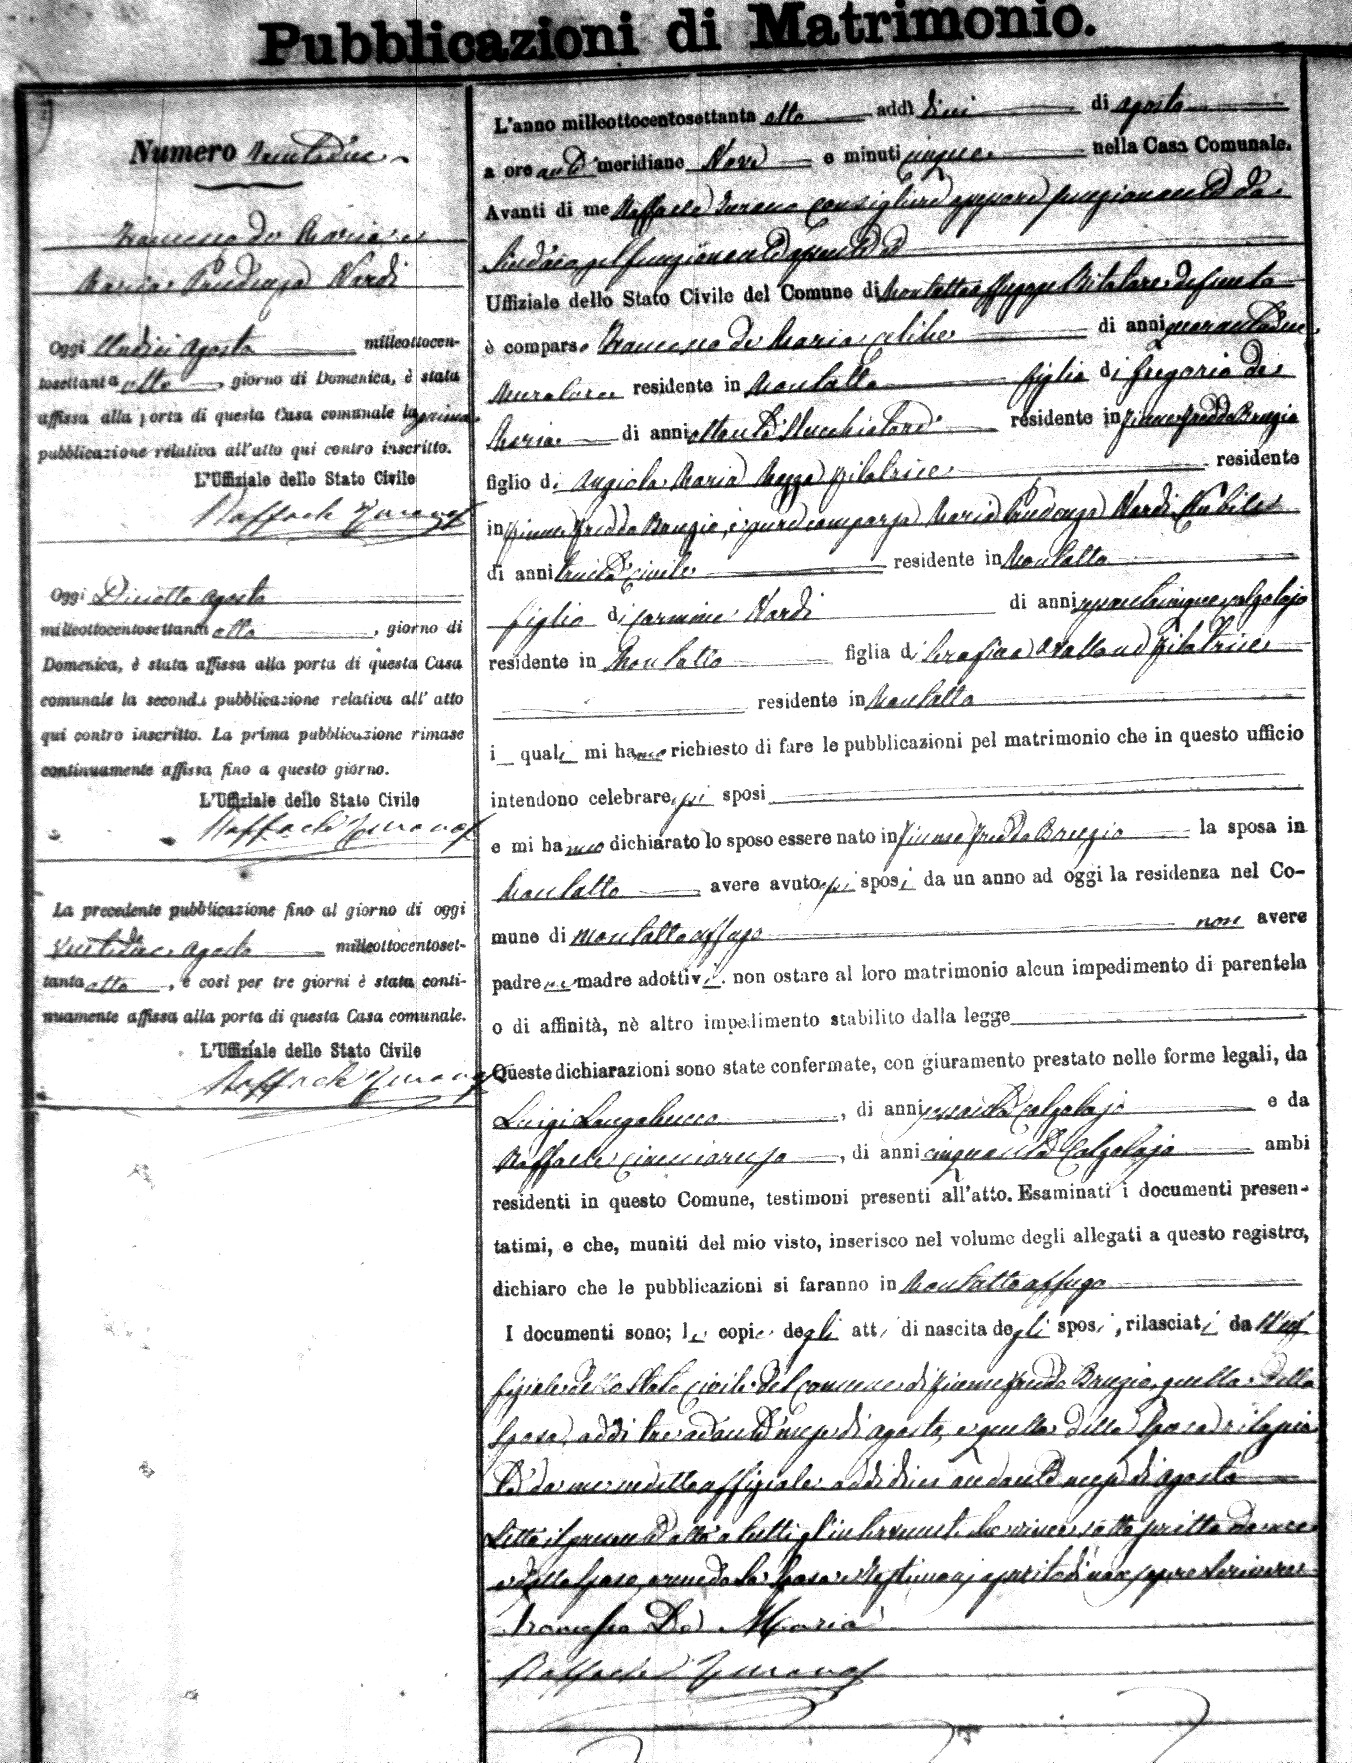 Pubblicazioni di Matrimonio.
Numero ventidue
Francesco De Maria e
Maria Prudenza Nardi
Oggi Undici Agosto milleottocen-
tosettanta otto, giorno di Domenica, è stata
affissa alla porta di questa Casa comunale la prima
pubblicazione relativa all'atto qui contro inscritto.
L'Uffiziale dello Stato Civile
Raffaele Turano
Oggi Diciotto agosto
milleottocentosettanta otto, giorno di
Domenica, è stata affissa alla porta di questa Casa
comunale la seconda pubblicazione relativa all' atto
qui contro inscritto. La prima pubblicazione rimase
continuamente affissa fino a questo giorno.
L'Uffiziale dello Stato Civile
Raffaele Turano
La precedente pubblicazione fino al giorno di oggi
Ventidue agosto milleottocentoset-
tanta otto, e così per tre giorni è stata conti-
nuamente affissa alla porta di questa Casa comunale.
L'Uffiziale dello Stato Civile
Raffaele Turano
L'anno milleottocentosettanta otto addì dieci di agosto
a ore anti meridiane Nove e minuti cinque nella Casa Comunale.
Avanti di me Raffaele Turano Consigliere funzionante da
Sindaco
Uffiziale dello Stato Civile del Comune di Montalto Uffugo
è comparso Francesco de Maria celibe di anni quarantadue
Muratore residente in Montalto figlio di Gregorio de
Maria di anni ottanta residente in Fiumefreddo Bruzio
figlio di Angiola Maria filatrice residente
in Fiumefreddo Bruzio, è pure comparsa Maria Prudenza Nardi Nubile
di anni trenta civile residente in Montalto
figlia di Carmine Nardi di anni calzolajo
residente in Montalto figlia di Serafina filatrice
residente in Montalto
i quali mi hanno richiesto di fare le pubblicazioni pel matrimonio che in questo ufficio
intendono celebrare essi sposi
e mi hanno dichiarato lo sposo essere nato in Fiumefreddo Bruzio la sposa in
Montalto avere avuto essi sposi da un anno ad oggi la residenza nel Co-
mune di Montalto Uffugo non avere
padre ne madre adottivi. non ostare al loro matrimonio alcun impedimento di parentela
o di affinità, nè altro impedimento stabilito dalla legge
Queste dichiarazioni sono state confermate, con giuramento prestato nelle forme legali, da
Luigi Longobucco, di anni calzolajo e da
Raffaele, di anni cinquanta Calzolajo ambi
residenti in questo Comune, testimoni presenti all'atto. Esaminati i documenti presen-
tatimi, e che, muniti del mio visto, inserisco nel volume degli allegati a questo registro,
dichiaro che le pubblicazioni si faranno in Montalto Uffugo
I documenti sono; le copie degli atti di nascita degli sposi, rilasciati da Uf
fiziale dello Stato Civile del Comune di Fiumefreddo Bruzio, quella dello
Sposo, addì tre andante mese di agosto, e quella della Sposa rilascia
ta da me medesimo uffiziale addì dieci andante mese di agosto
Letto il presente atto a tutti gl'intervenuti sottoscritto da me
e dallo sposo, avendo la sposa e testimonj asserito di non sapere scrivere
Francesco De Maria
Raffaele Turano